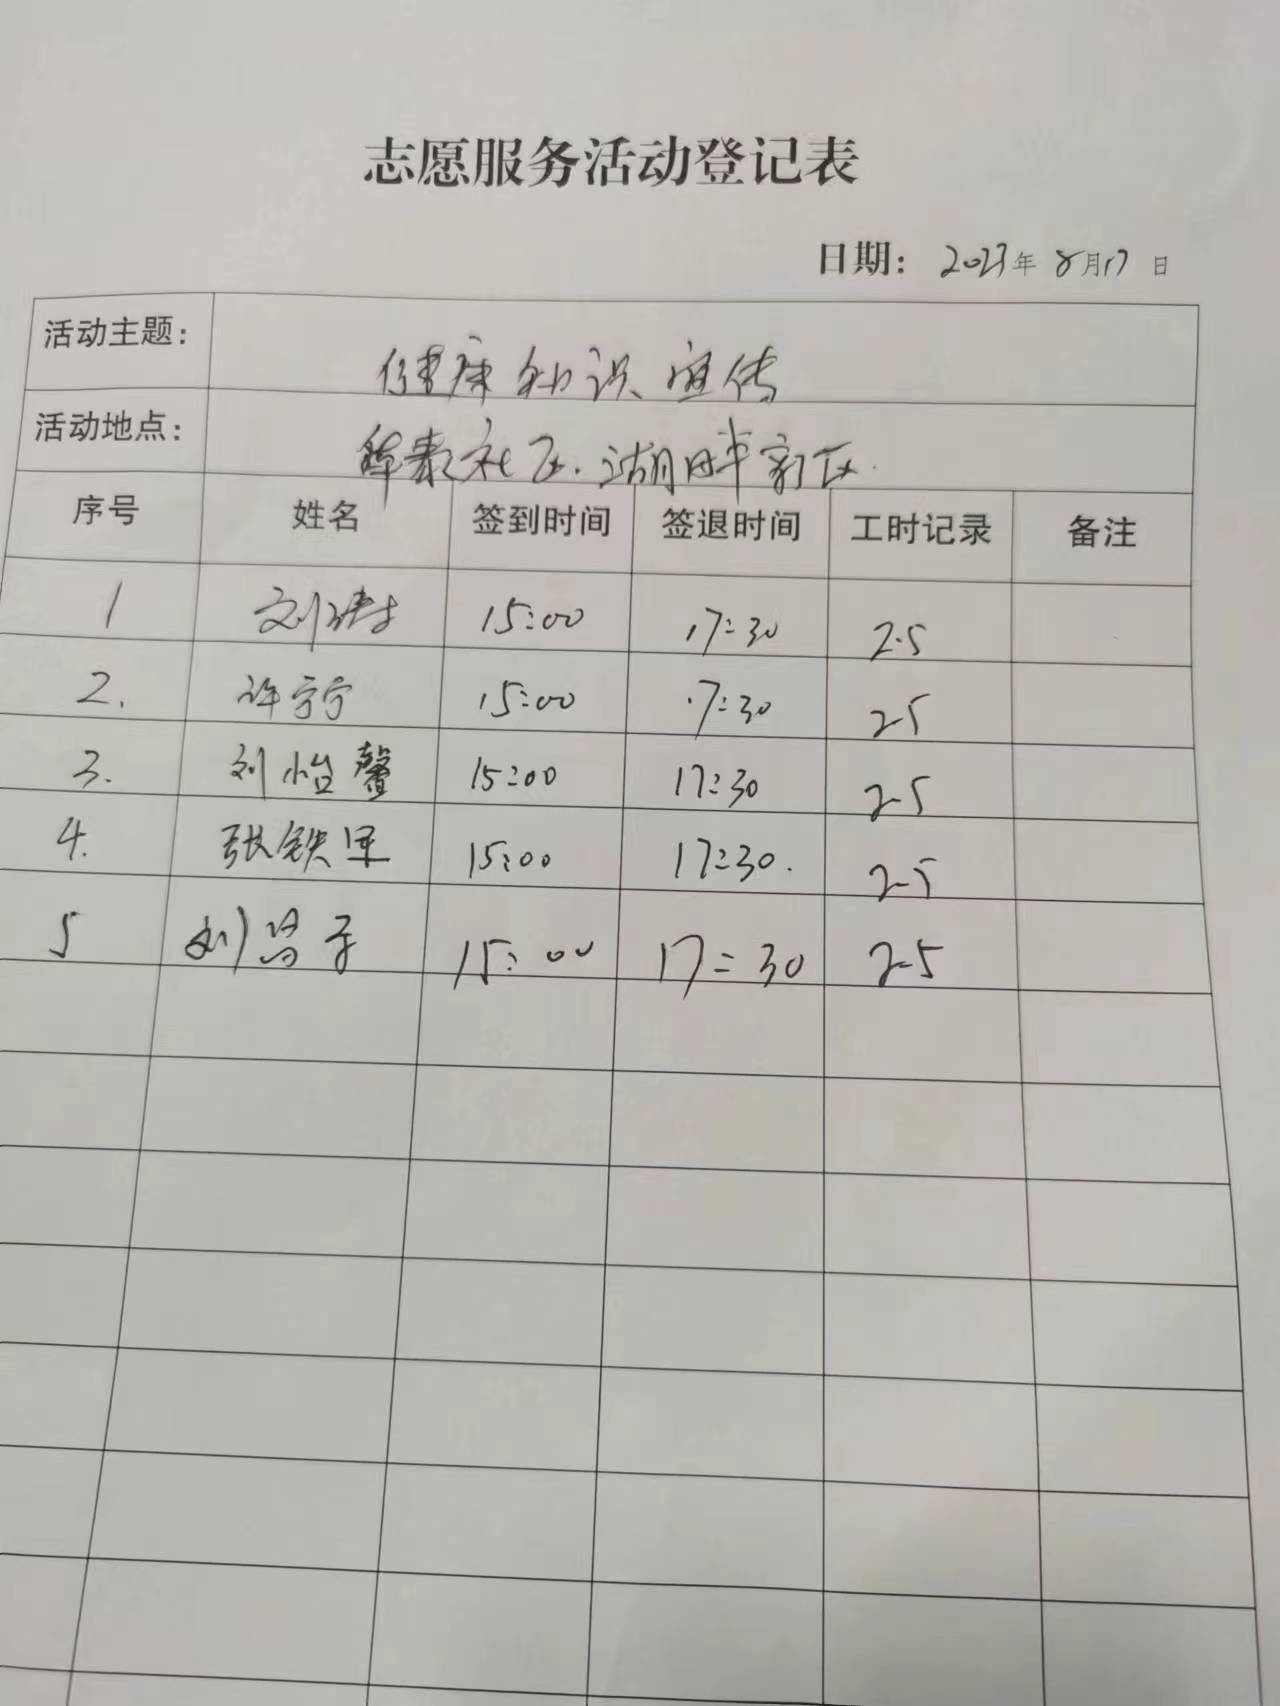 志愿服务活动登记表
日期：2023年8月17日
活动主题：健康知识宣传
活动地点：社区.湖畔新区.
序号 姓名 签到时间 签退时间 工时记录 备注
1 刘 15:00 17:30 2.5
2. 许宁宁 15:00 17:30 2.5
3. 刘怡馨 15:00 17:30 2.5
4. 张铁军 15:00 17:30. 2.5
5 刘 15:00 17:30 2.5